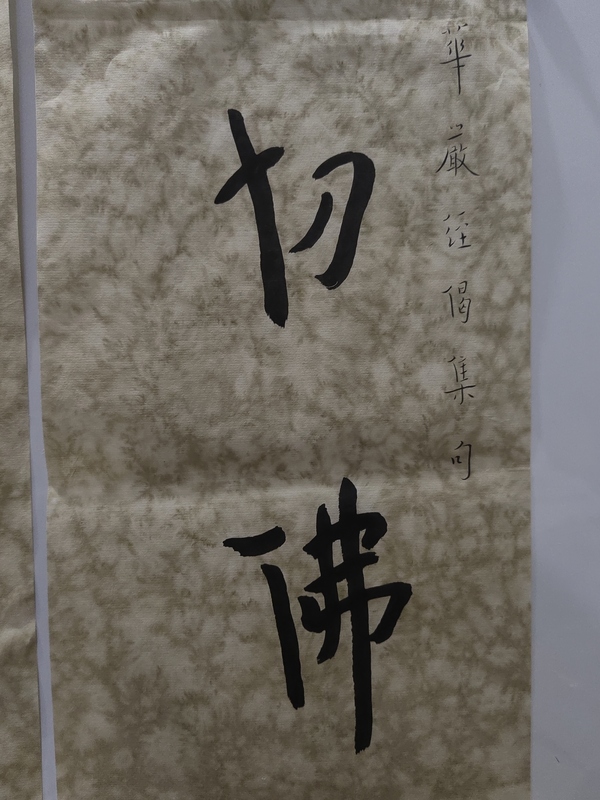 華嚴經偈集句
切佛